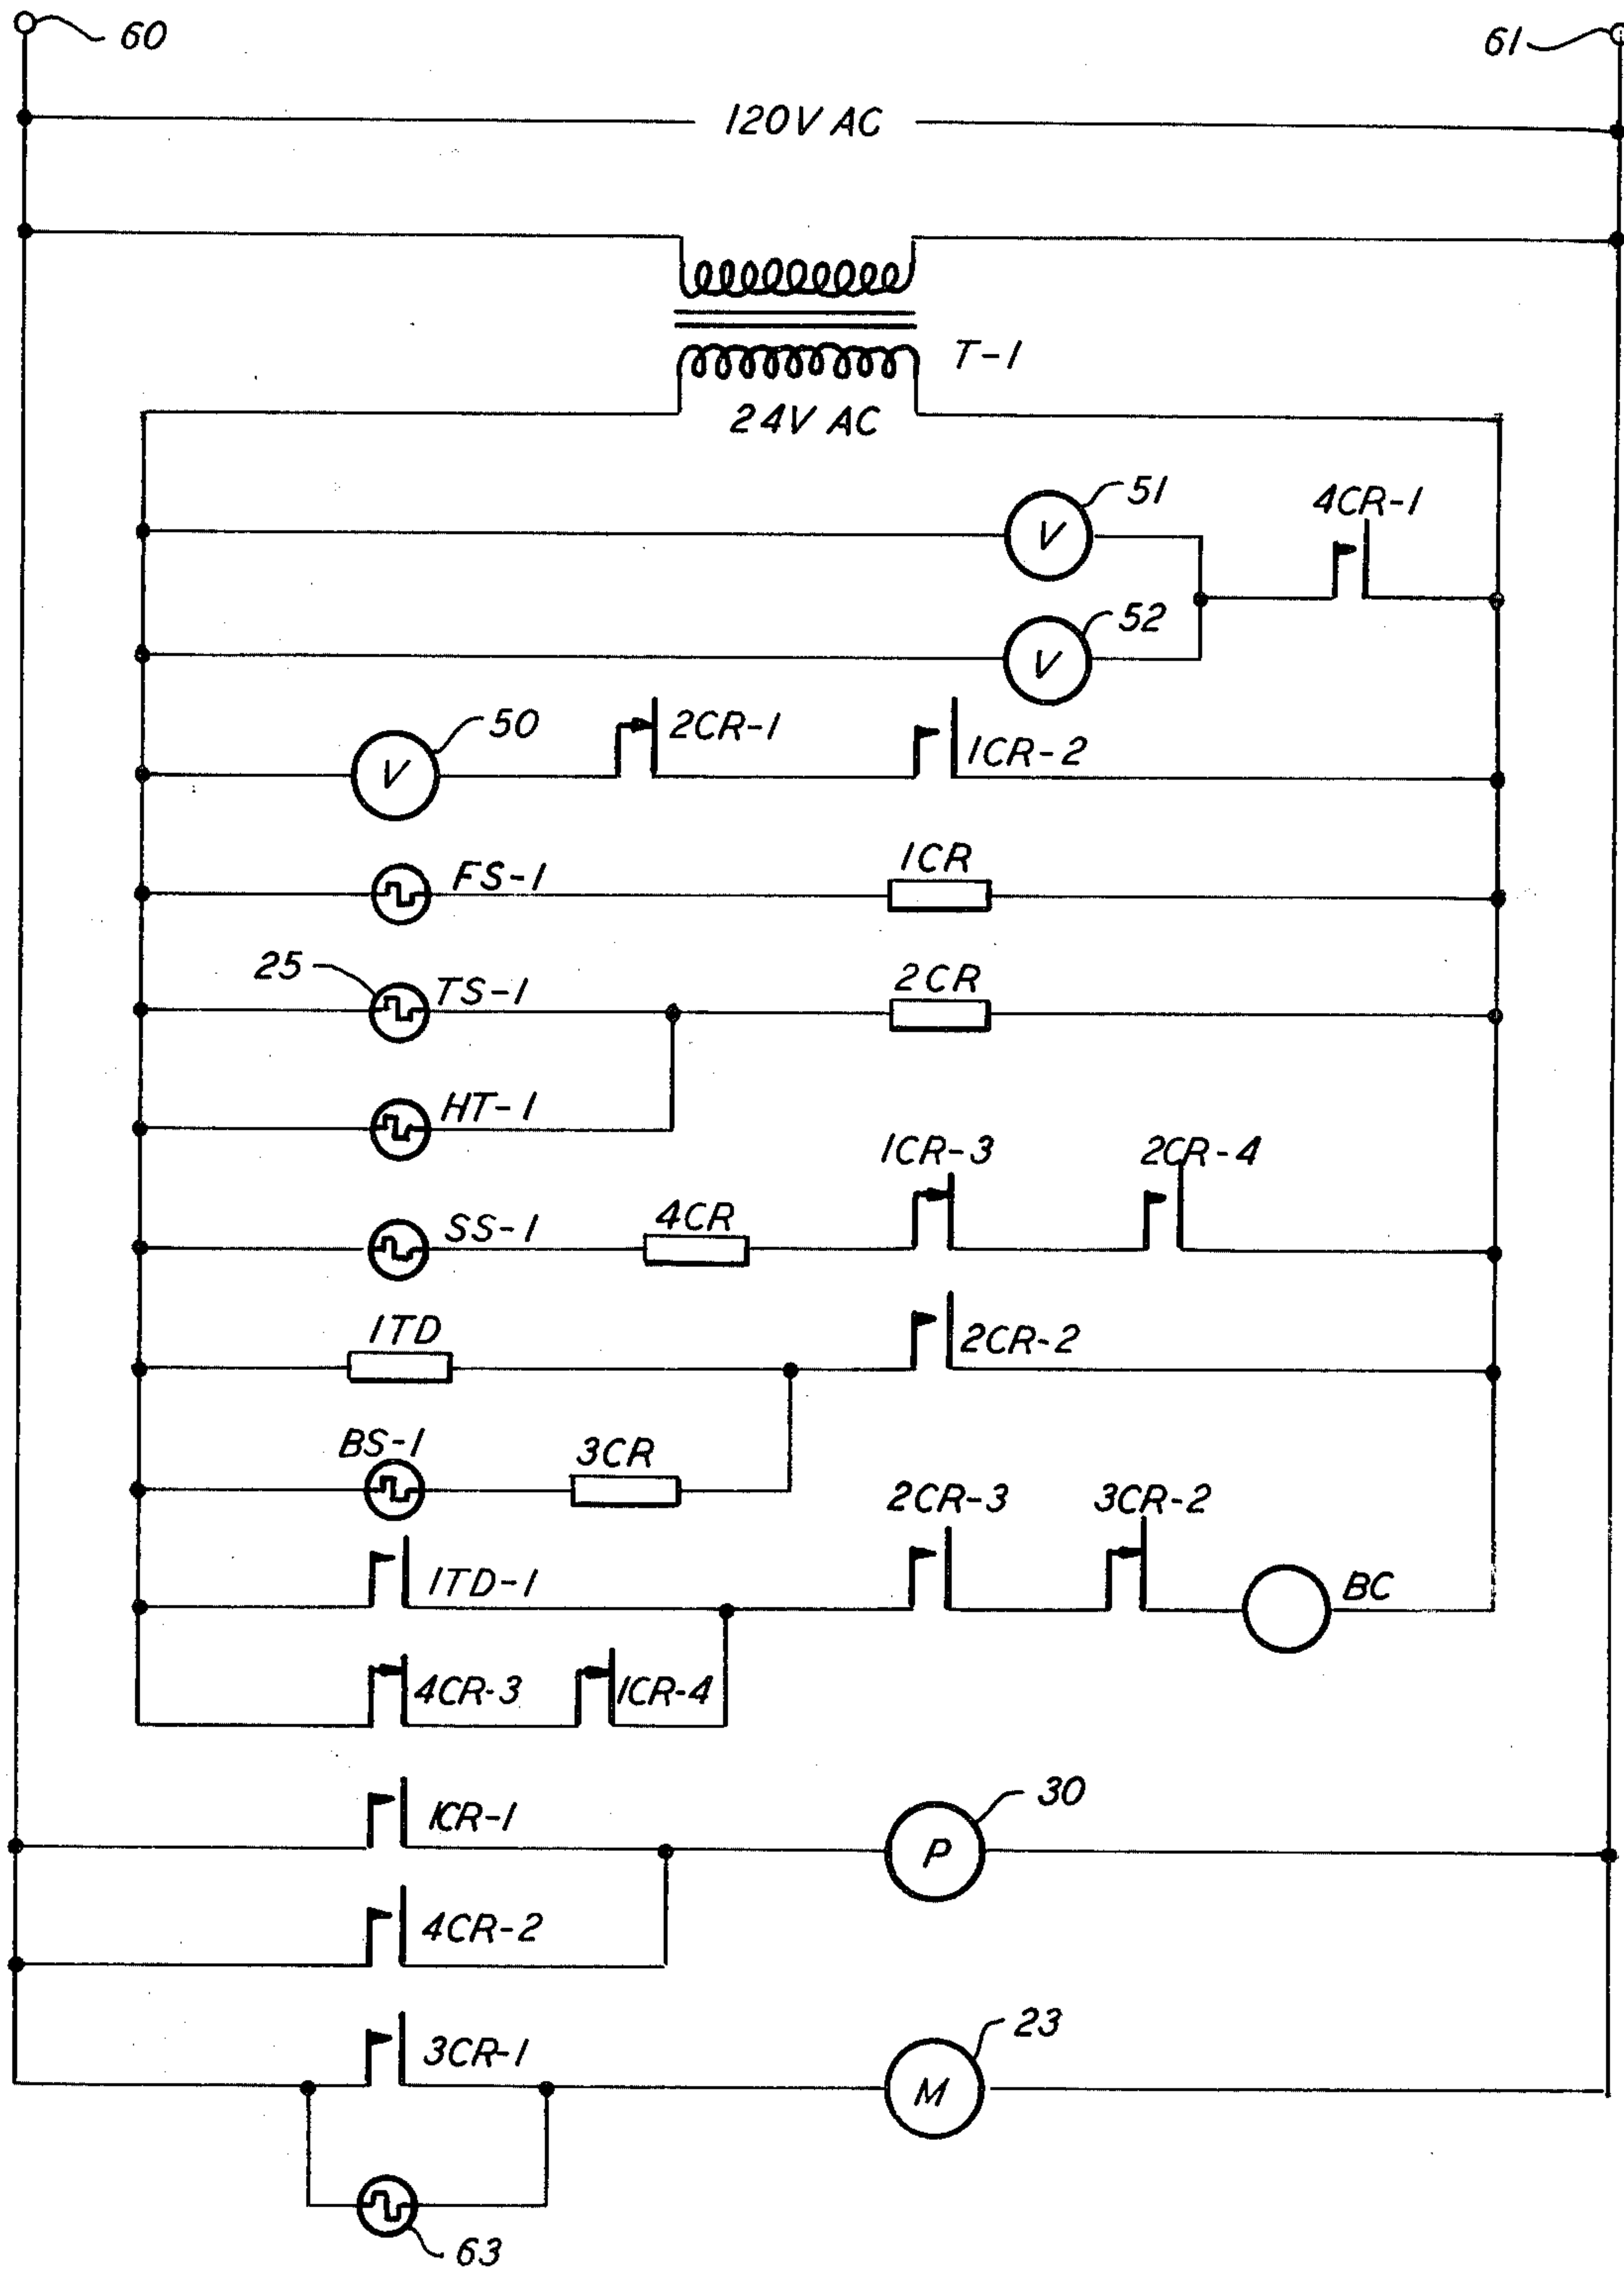 60
61
120V AC
T-1
24V AC
51
4CR-1
V
52
V
50
2CR-1
1CR-2
V
FS-1
1CR
25
TS-1
2CR
HT-1
1CR-3
2CR-4
SS-1
4CR
1TD
2CR-2
BS-1
3CR
2CR-3
3CR-2
1TD-1
BC
4CR-3
1CR-4
30
1CR-1
P
4CR-2
23
3CR-1
M
63